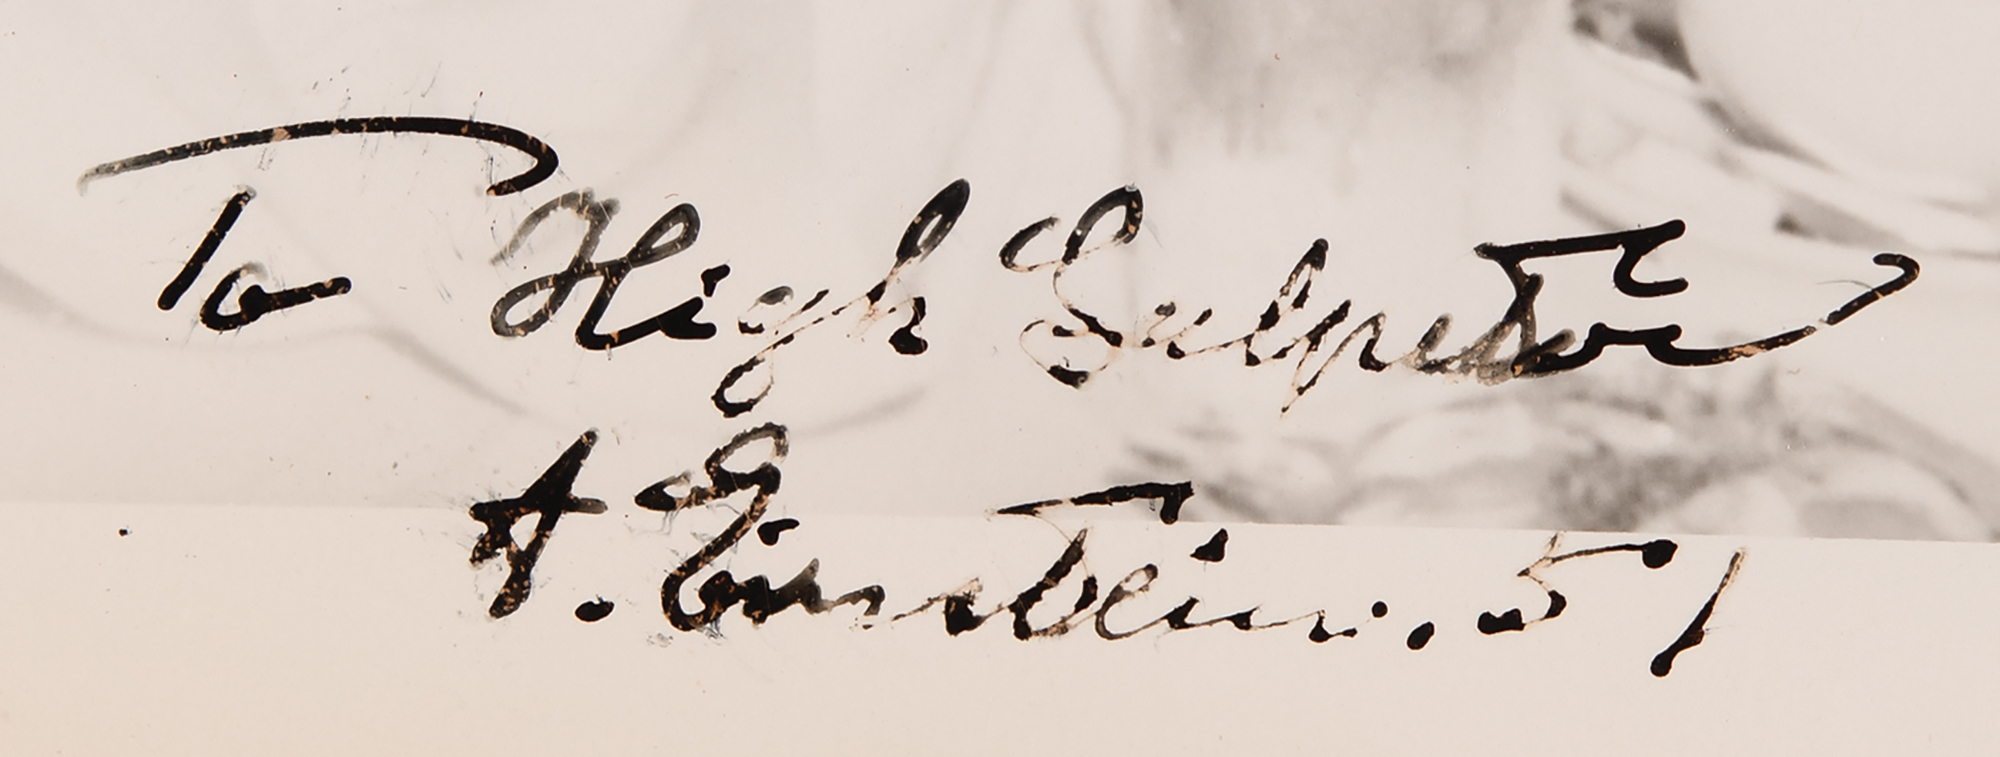 To High Sulpetor
A. Einstein. 51